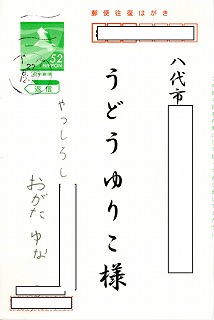 郵便往復はがき
52
NIPPON
返信
八代市
うどうゆりこ様
やっしろし
おがた ゆな